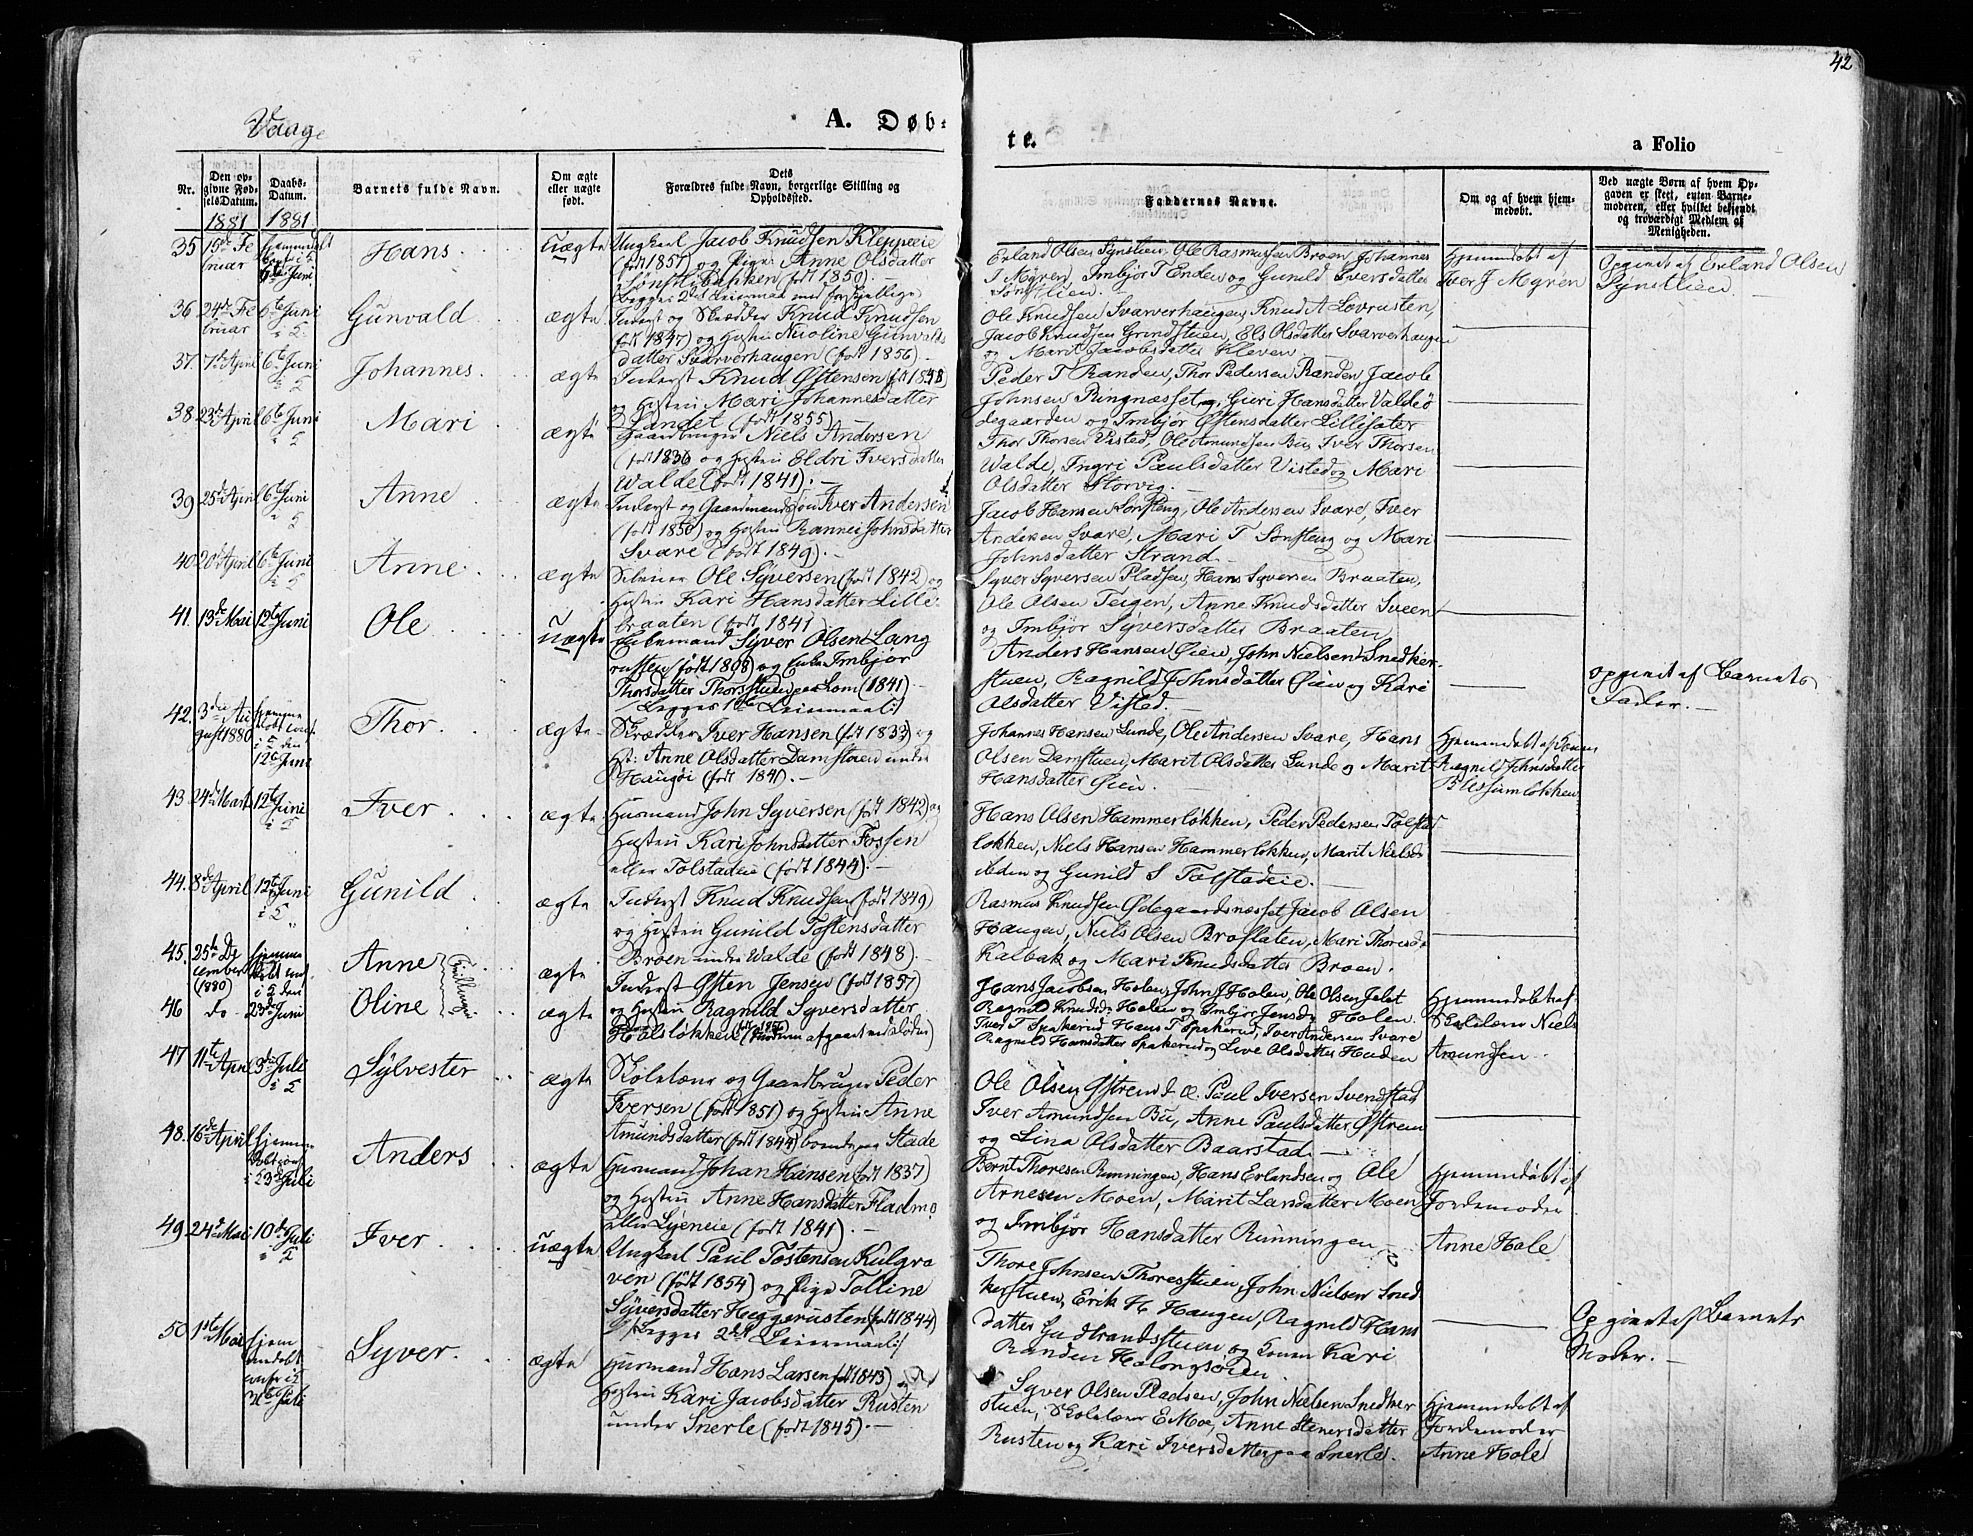 42
Vaage
A. Døb-
te.
a Folio
Nr.
Den op-
givne Fød-
selsDatum.
Daabs-
Datum.
Barnets fulde Navn.
Om ægte
eller uægte
født.
Dets
Forældres fulde Navn, borgerlige Stilling og
Opholdssted.
Faddernes Navne.
Om og af hvem hjem-
medøbt.
Ved uægte Børn af hvem Op-
gaven er skeet, enten Barne-
moderen, eller hvilket bekjendt
og troværdigt Medlem af
Menigheden.
1881
1881
35
15de Fe
bruar
Hans
uægte
Ungkarl Jacob Knudsen Kleppeeie
(født 1857) og Pige Anne Olsdatter
(født 1850).
Erland Olsen Synstlien, Ole Rasmussen Broen, Johannes
J Myren, Imbjør T Enden og Gunild Iversdatter
Hjemmedøbt af
Iver J Myren
Opgivet af Erland Olsen
Synstlien.
36
24de Fe
bruar
6te Juni
Gunvald
ægte
Inderst og Skrædder Knud Knudsen
født 1847) og Hustru Nicoline Gunvalds
datter Svarverhaugen (født 1856).
Ole Knudsen Svarverhaugen, Knud A Lovrusten,
Jacob Knudsen Grindstuen, Els Olsdatter Svarverhaugen
og Marit Jacobsdatter Kleven
37.
7de April
6te Juni
Johannes
ægte
Inderst Knud Østensen
og Hustru Mari Johannesdatter
Sandet (født 1855)
Peder T Randen, Thor Pedersen Randen, Jacob
Johnsen Ringnæsset, Guri Hansdatter Valdeø
degaarden og Imbjør Østensdatter Lillesæter
38
23de April
6te Juni
Mari
ægte
Gaardbruger Niels Andersen
(født 1836 og Hustru Eldri Iversdatter
Walde (født 1841).
Thor Thorsen Visted, Ole Amundsen Bu, Iver Thorsen
Walde, Ingri Paulsdatter Visted og Mari
Olsdatter Storvig.
39
25de April
6te Juni
Anne
ægte
Inderst og Gaardmandssøn Iver Andersen
(født 1856) og Hustru Rannei Johnsdatter
Svare (født 1849).
Jacob Hansen Sønsteng, Ole Andersen Svare, Iver
Andersen Svare, Mari T Sønsteng og Mari
Johnsdatter Strand.
40
20de April
6te Juni
Anne
ægte
Ole Syversen (født 1842) og
Hustru Kari Hansdatter Lille
braaten (født 1841)
Syver Syversen Pladsen, Hans Syversen Braaten,
Ole Olsen Teigen, Anne Knudsdatter Sveen
og Imbjør Syversdatter Braaten
41.
13de Mai
12te Juni
Ole
uægte
Enkemand Syver Olsen Lang
rusten og Enke Imbjør
Thorsdatter Thorsstuen paa Lom (1841).
Begges 1ste Leiermaal
Anders Hansen Øien, John Nielsen Snedker
stuen, Ragnild Johnsdatter Øien og Kari
Olsdatter Visted.
opgivet af Barnets
Fader.
42.
3die Au
gust 1880
12te Juni
Thor
ægte
Skrædder Iver Hansen (født 1833) og
H: Anne Olsdatter Damstuen under
Haugøi (født 1841).
Johannes Hansen Lunde, Ole Andersen Svare, Hans
Olsen Damstuen, Marit Olsdatter Lunde og Marit
Hansdatter Øien.
Hjemmedøbt af Konen
Ragnild Johnsdatter
Blessumløkken
43
24de Marts
12te Juni
Iver
ægte
Husmand John Syversen (født 1842) og
Hustru Kari Johnsdatter Fossen
eller Tolstadeie (født 1844).
Hans Olsen Hammerløkken, Peder Pedersen Tolstad
løkken, Niels Hansen Hammerløkken, Marit Nielsd:
ibden og Gunild S Tolstadeie.
44.
8de April
12te Juni
Gunild
ægte
Inderst Knud Knudsen (født 1849)
og Hustru Gunild Tostensdatter
Broen under Walde (født 1848).
Rasmus Knudsen Ødegaardsnæsset, Jacob Olsen
Haugen, Niels Olsen Broslaten, Mari Thoresd:
Kalbak og Mari Knudsdatter Broen.
45.
25de De
cember
(1880)
23de Juni
Anne
ægte
46
do
Oline
Tvillinger
ægte
Inderst Østen Jensen (født 1857)
og Hustru Ragnild Syversdatter
Holsløkken
Hans Jacobsen Holen, John J Holen, Ole Olsen Jelst
Ragnild Knudsd: Holen og Imbjør Jensd: Holen.
Iver T Spakerud, Hans T Spakerud, Iver Andersen Svare
Ragnild Hansdatter Spakerud og Live Olsdatter Haden
Hjemmedøbt af
Skolelærer Niels
Amundsen.
47
11te April
3die Juli
Sylvester
ægte
Skolelærer og Gaardbruger Peder
Iversen (født 1851) og Hustru Anne
Amundsdatter (født 1844) boende paa Stade
Ole Olsen Østrem, Paul Iversen Svendstad
Iver Amundsen Bu, Anne Paulsdatter Østrem
og Lina Olsdatter Baarstad.
48.
16de April
Anders
ægte
Husmand Johan Hansen født 1837)
og Hustru Anne Hansdatter Fladmo
eller Lyeneie (født 1841).
Bernt Thoresen Runningen, Hans Erlandsen og Ole
Arnesen Moen, Marit Larsdatter Moen
og Imbjør Hansdatter Runningen
Hjemmedøbt af
Jordemoder
Anne Hole
49.
24de Mai
10de Juli
Iver
uægte
Ungkarl Paul Tostensen Kulgra
ven (født 1854) og Pige Tolline
Syversdatter Heggerusten (født 1844)
Begges 2det Leiermaal
Thore Johnsen Thoresstuen, John Nielsen Sned
kerstuen, Erik H Haugen, Ragnild Hans
datter Gudbrandsstuen og Konen Kari
Randen Holongsøien
Opgivet af Barnets
Moder.
50
1ste Mai
Syver
ægte
Husmand Hans Larsen født 1843)
Hustru Kari Jacobsdatter Rusten
under Snerle (født 1845).
Syver Olsen Pladsen, John Nielsen Snedker
stuen, Skolelærer E Moe, Anne Stenersdatter
Rusten og Kari Iversdatter paa Snerle.
Hjemmedøbt af
Jordemoder
Anne Hole